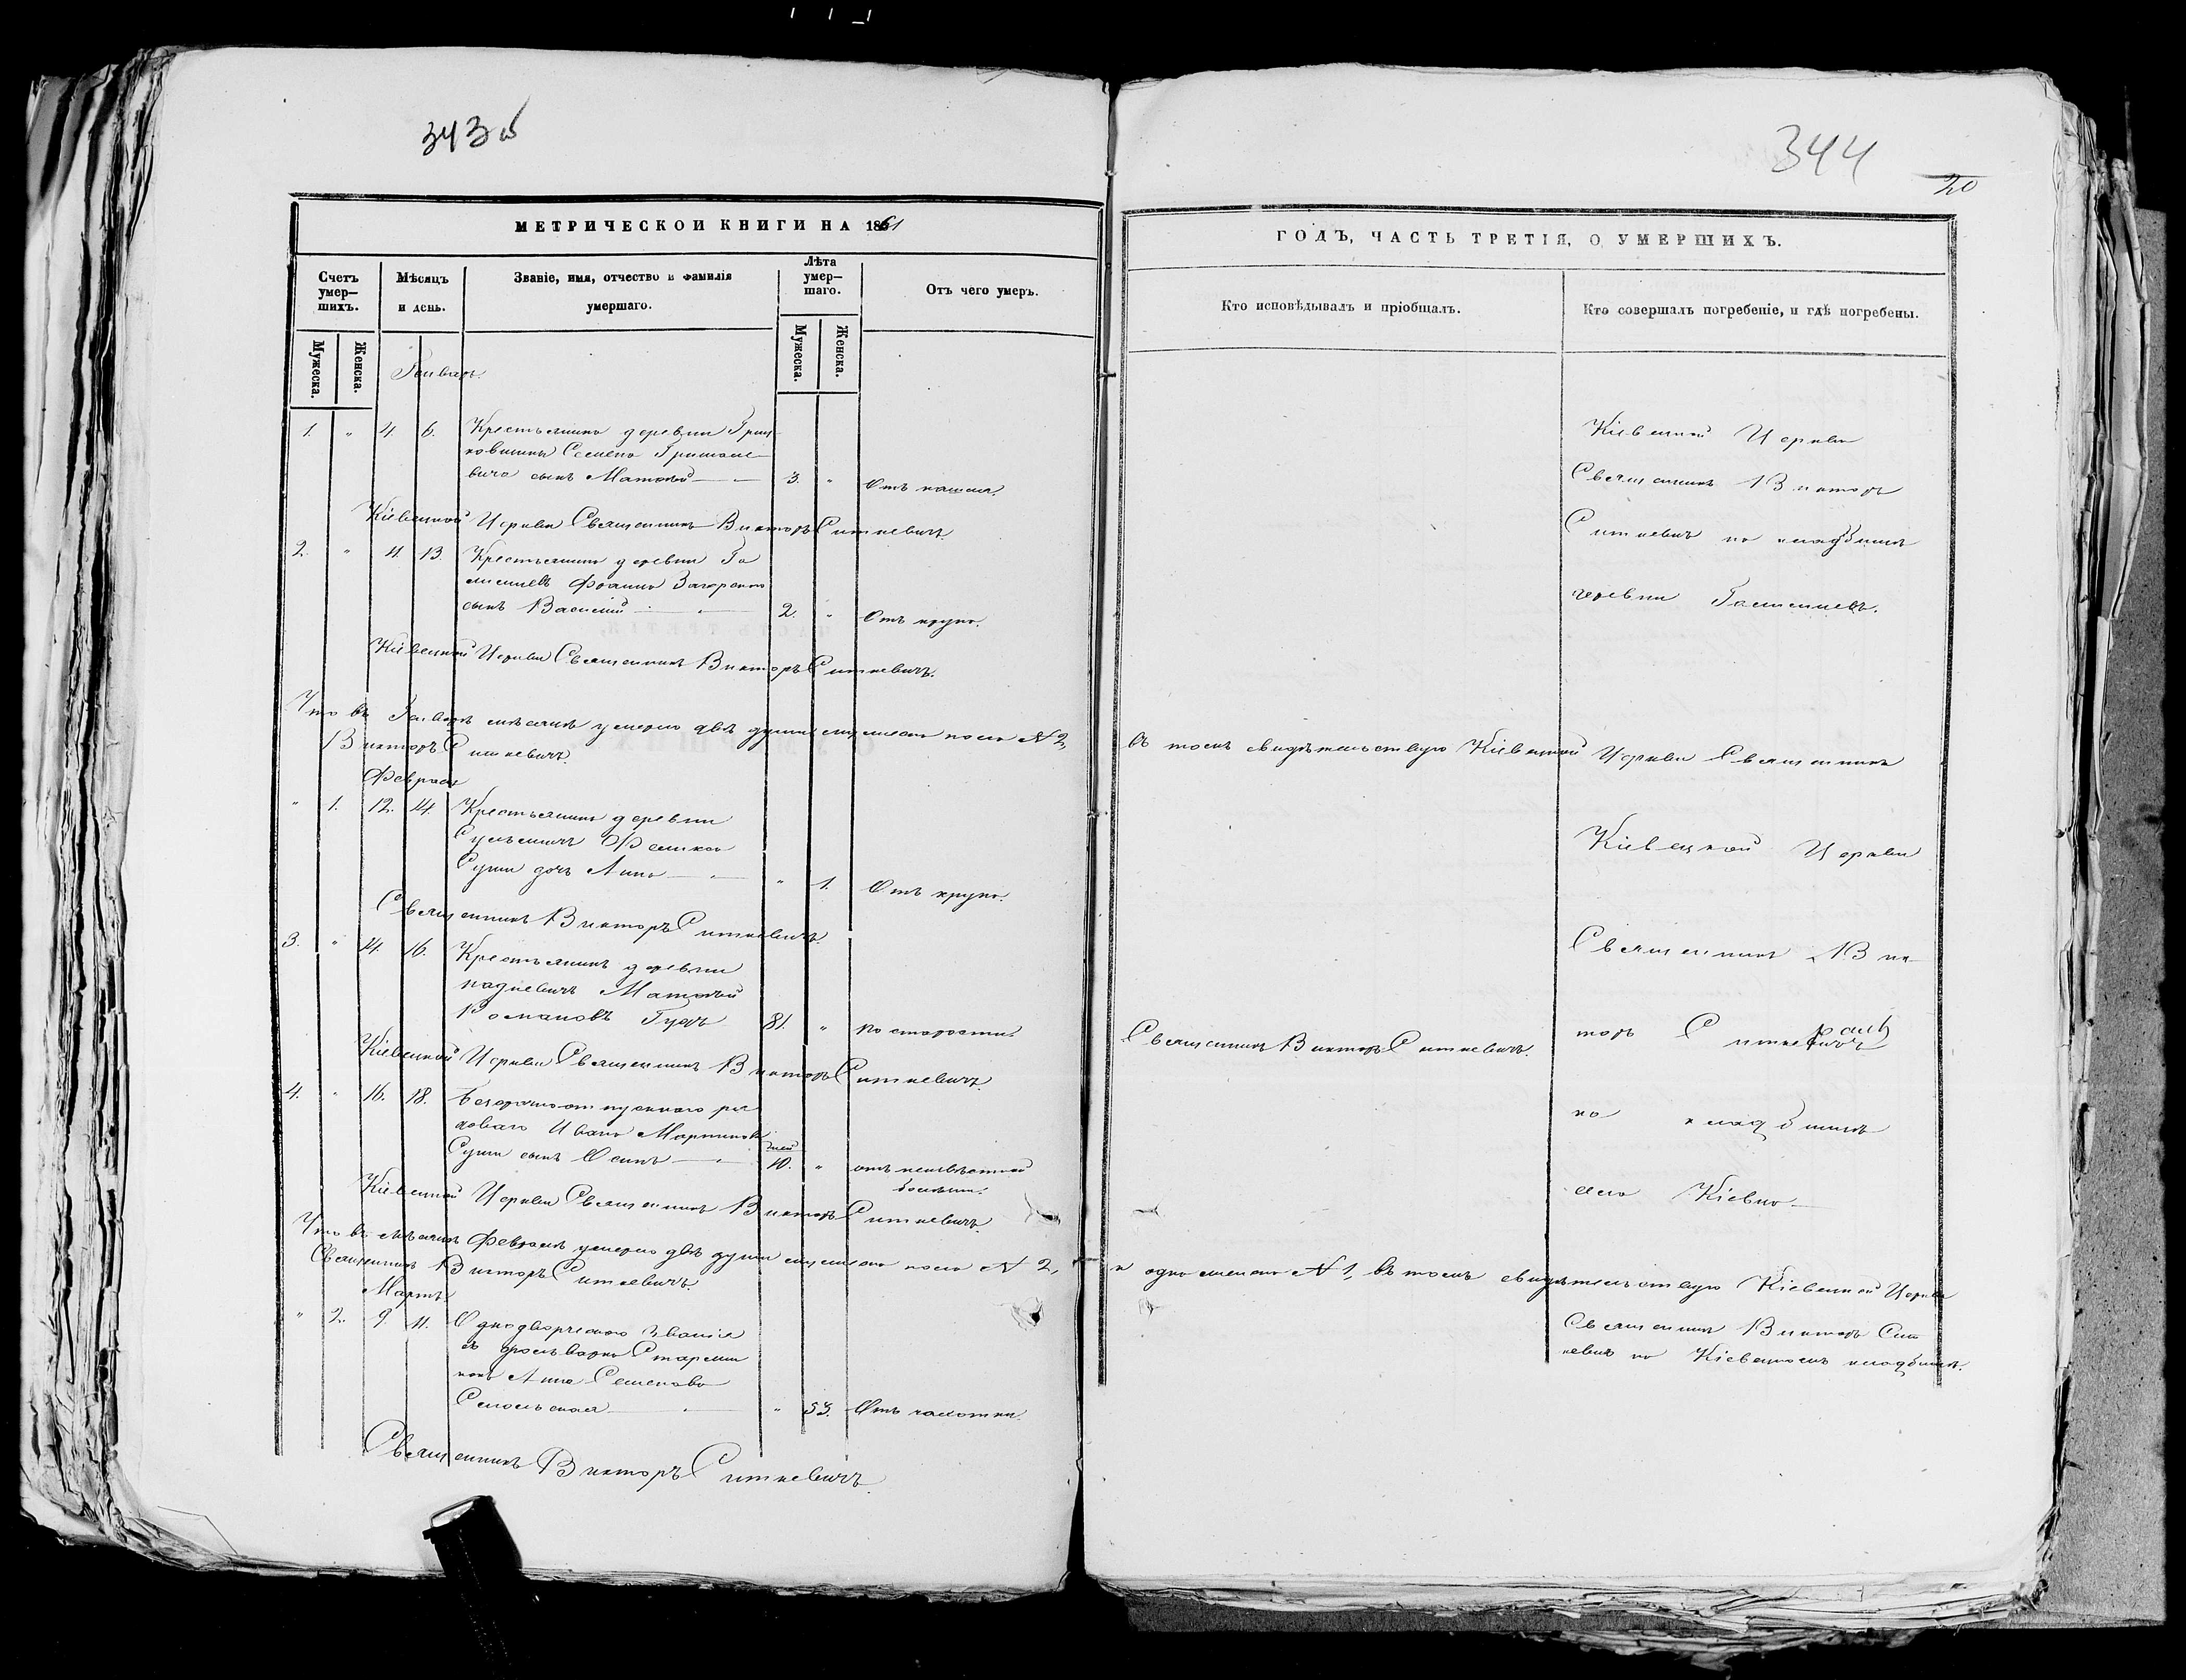 343 об
344
20
МЕТРИЧЕСКОЙ КНИГИ НА 1861
ГОДЪ, ЧАСТЬ ТРЕТІЯ, О УМЕРШИХЪ.
Счетъ умер-
шихъ.
Мѣсяцъ
и день.
Званіе, имя, отчество и фамилія
умершаго.
Лѣта
умер-
шаго.
Отъ чего умеръ.
Кто исповѣдывалъ и пріобщалъ.
Кто совершалъ погребеніе, и гдѣ погребены.
Мужеска.
Женска.
Мужеска.
Женска.
Январь.
1. " 4. 6. Крестьянина деревни
Семена
сынъ Матвѣй 3. " Отъ кашля.
Кіевецкой Церкви Священникъ Викторъ Ситкевичъ.
2. " 11 13. Крестьянина деревни
сынъ Василій 2. " Отъ крупа.
Кіевецкой Церкви Священникъ Викторъ Ситкевичъ.
Кіевецкой Церкви
Священникъ Викторъ
Ситкевичъ на кладбищѣ
деревни
Что въ Январѣ мѣсяцѣ умерло двѣ души мужеска пола № 2, въ томъ свидѣтельствую Кіевецкой Церкви Священникъ
Викторъ Ситкевичъ.
Февраль
" 1. 12. 14. Крестьянина деревни
Сущи дочь Анна " 1. Отъ крупа.
Священникъ Викторъ Ситкевичъ.
3. " 14. 16. Крестьянинъ деревни
Матвѣй
Романовъ 81. " По старости.
Священникъ Викторъ Ситкевичъ.
Кіевецкой Церкви Священникъ Викторъ Ситкевичъ.
4. " 16. 18. Безсрочноотпускнаго ря-
доваго Ивана Мартинова
Сущи сынъ Осипъ дней 10. " отъ неизвѣстной
болѣзни.
Кіевецкой Церкви Священникъ Викторъ Ситкевичъ.
Кіевецкой Церкви
Священникъ Вик-
торъ Ситкевичъ
на кладбищѣ
села Кіевца
Что въ мѣсяцѣ Февралѣ умерло двѣ души мужеска пола № 2, и одна женска № 1, въ томъ свидѣтельствую Кіевецкой Церкви
Священникъ Викторъ Ситкевичъ.
Мартъ.
" 2. 9. 11. Однодворческаго званія
Анна Семенова
" 53. Отъ чахотки.
Священникъ Викторъ Сит-
кевичъ на Кіевецкомъ кладбищѣ.
Священникъ Викторъ Ситкевичъ.